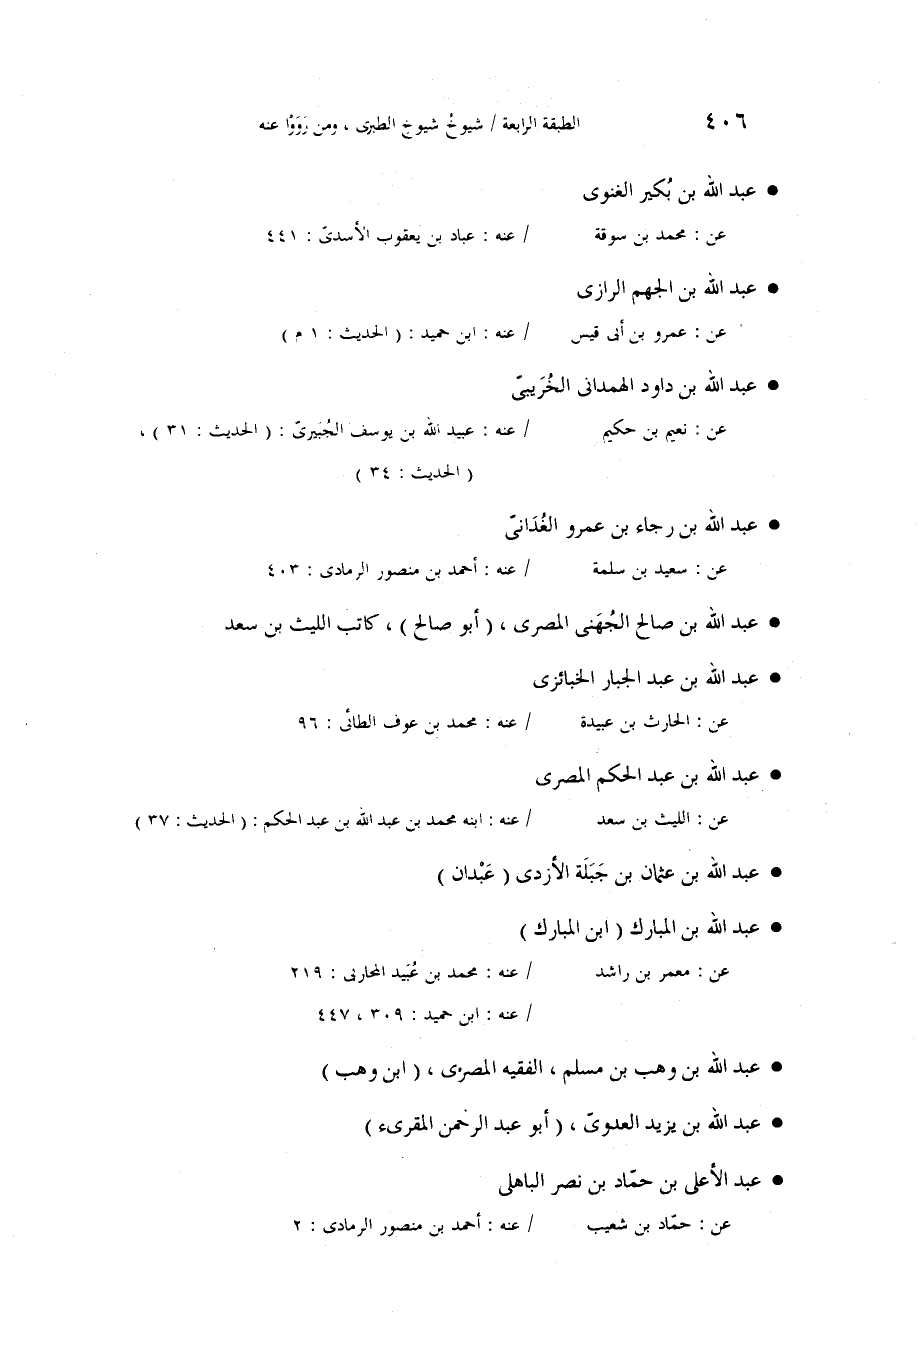 ٤٠٦ الطبقة الرابعة / شيوخُ شيوخ الطبرى ، ومن رَوَوْا عنه
● عبد الله بن بُكير الغنوى
عن : محمد بن سوقة / عنه : عباد بن يعقوب الأسدىّ : ٤٤١
● عبد الله بن الجهم الرازى
عن : عمرو بن أبى قيس / عنه : ابن حميد : ( الحديث : ١ م )
● عبد الله بن داود الهمدانى الخُرَيبىّ
عن : نعيم بن حكيم / عنه : عبيد الله بن يوسف الجُبيرىّ : ( الحديث : ٣١ ) ،
( الحديث : ٣٤ )
● عبد الله بن رجاء بن عمرو الغُدَانىّ
عن : سعيد بن سلمة / عنه : أحمد بن منصور الرمادى : ٤٠٣
● عبد الله بن صالح الجُهَنى المصرى ، ( أبو صالح ) ، كاتب الليث بن سعد
● عبد الله بن عبد الجبار الخبائزى
عن : الحارث بن عبيدة / عنه : محمد بن عوف الطائى : ٩٦
● عبد الله بن عبد الحكم المصرى
عن : الليث بن سعد / عنه : ابنه محمد بن عبد الله بن عبد الحكم : ( الحديث : ٣٧ )
● عبد الله بن عثمان بن جَبَلَة الأزدى ( عَبْدان )
● عبد الله بن المبارك ( ابن المبارك )
عن : معمر بن راشد / عنه : محمد بن عُبَيد المحاربى : ٢١٩
/ عنه : ابن حميد : ٣٠٩ ، ٤٤٧
● عبد الله بن وهب بن مسلم ، الفقيه المصرى ، ( ابن وهب )
● عبد الله بن يزيد العدوىّ ، ( أبو عبد الرحمن المقرىء )
● عبد الأعلى بن حمّاد بن نصر الباهلى
عن : حمّاد بن شعيب / عنه : أحمد بن منصور الرمادى : ٢